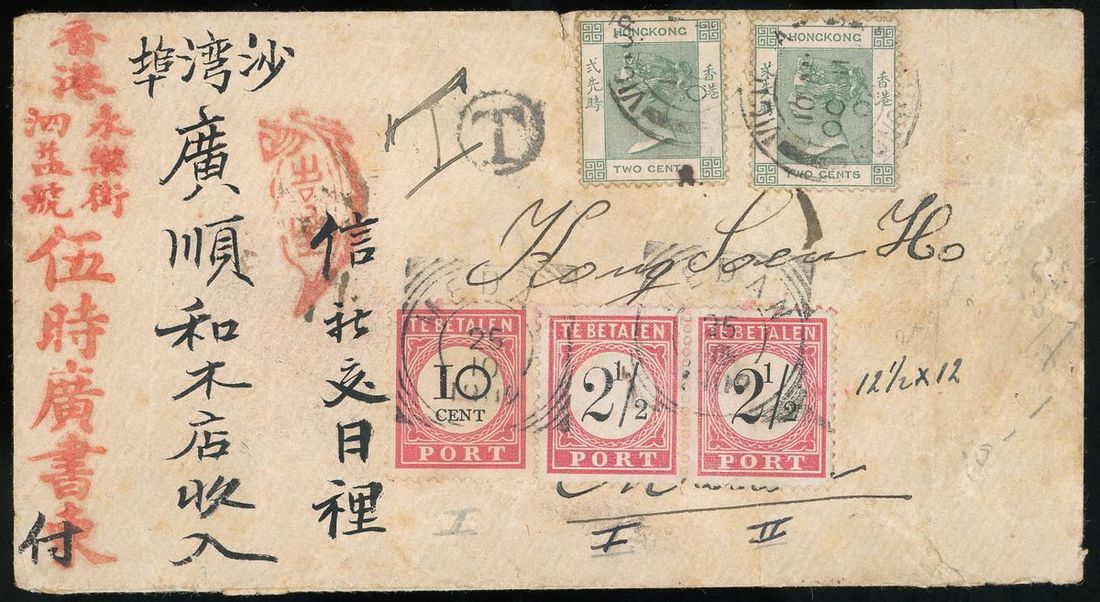 香港
永樂街
泗益號
伍時廣書柬
付
沙湾埠
廣順和木店收入
信祈交日裡
T
T
HONGKONG
香港
弍先時
TWO CENTS
HONGKONG
香港
TWO CENTS
VICTORIA
Kong Soen Ho
MEDAN
25
TE BETALEN
10
CENT
PORT
TE BETALEN
2 1/2
PORT
MEDAN
25
TE BETALEN
2 1/2
PORT
12 1/2 x 12
I
I
II